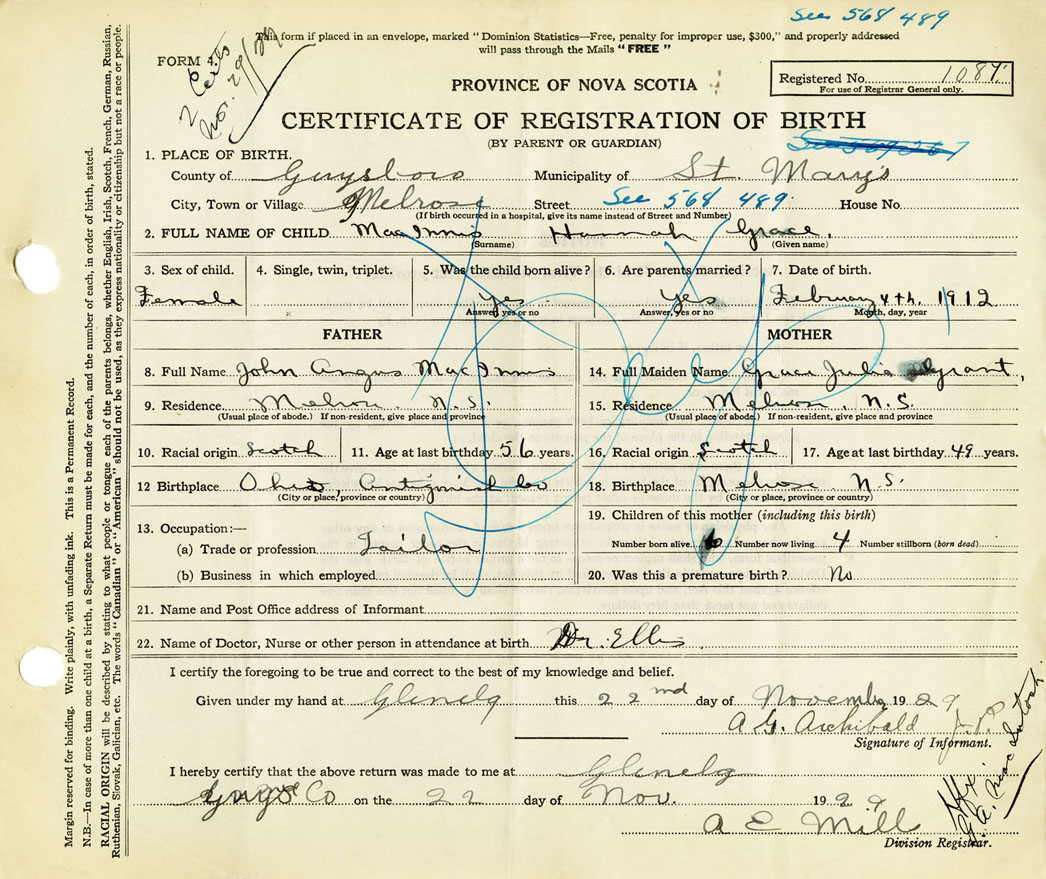 See 568 489
This form if placed in an envelope, marked "Dominion Statistics—Free, penalty for improper use, $300," and properly addressed
will pass through the Mails "FREE"
FORM 4.
2 Certs
Nov. 29/29
PROVINCE OF NOVA SCOTIA
Registered No. 1087
For use of Registrar General only.
CERTIFICATE OF REGISTRATION OF BIRTH
(BY PARENT OR GUARDIAN)
1. PLACE OF BIRTH.
County of Guysboro Municipality of St. Mary's
City, Town or Village Melrose Street See 568 489. House No.
(If birth occurred in a hospital, give its name instead of Street and Number)
2. FULL NAME OF CHILD MacInnis Hannah Grace,
(Surname) (Given name)
3. Sex of child. 4. Single, twin, triplet. 5. Was the child born alive? 6. Are parents married? 7. Date of birth.
Female Yes Yes February 4th, 1912
Answer, yes or no Answer, yes or no Month, day, year
FATHER MOTHER
8. Full Name John Angus MacInnis 14. Full Maiden Name Grace Julia Grant,
9. Residence Melrose, N.S. 15. Residence Melrose, N.S.
(Usual place of abode.) If non-resident, give place and province (Usual place of abode.) If non-resident, give place and province
10. Racial origin Scotch 11. Age at last birthday 56 years. 16. Racial origin Scotch 17. Age at last birthday 49 years.
12 Birthplace Ohio Antigonish Co 18. Birthplace Melrose N.S.
(City or place, province or country) (City or place, province or country)
13. Occupation:— 19. Children of this mother (including this birth)
(a) Trade or profession Tailor Number born alive 6 Number now living 4 Number stillborn (born dead)
(b) Business in which employed 20. Was this a premature birth? No
21. Name and Post Office address of Informant
22. Name of Doctor, Nurse or other person in attendance at birth Dr. Ellis
I certify the foregoing to be true and correct to the best of my knowledge and belief.
Given under my hand at Glenelg this 22nd day of November 1929
A. G. Archibald J.P.
Signature of Informant.
I hereby certify that the above return was made to me at Glenelg
Guys Co on the 22 day of Nov. 1929
A E Mill
Division Registrar.
Margin reserved for binding. Write plainly, with unfading ink. This is a Permanent Record.
N.B.—In case of more than one child at a birth, a Separate Return must be made for each, and the number of each, in order of birth, stated.
RACIAL ORIGIN will be described by stating to what people or tongue each of the parents belongs, whether English, Irish, Scotch, French, German, Russian,
Ruthenian, Slovak, Galician, etc. The words "Canadian" or "American" should not be used, as they express nationality or citizenship but not a race or people.